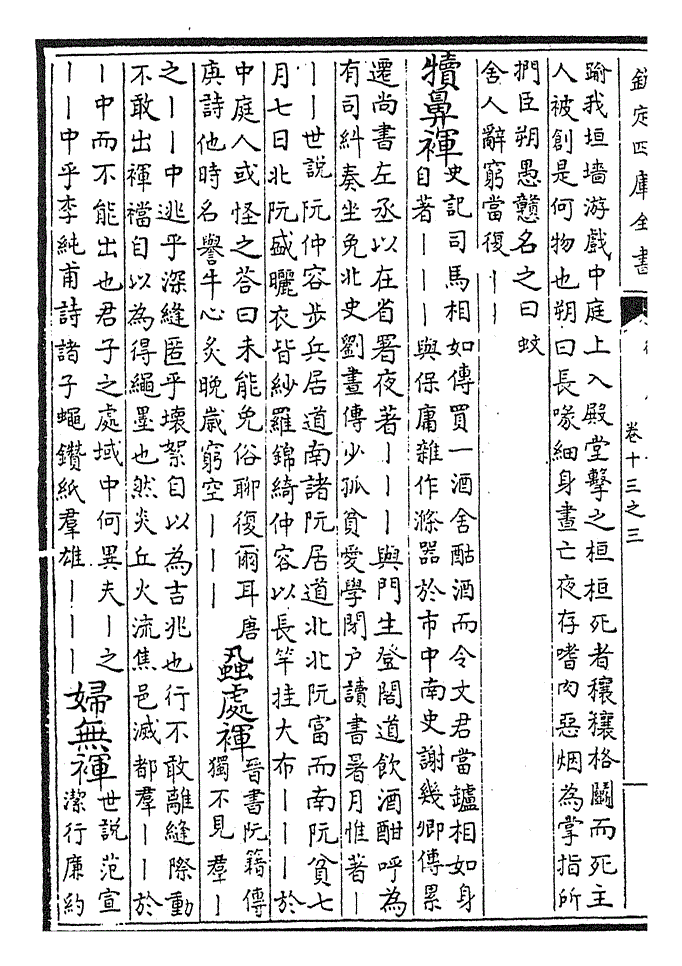 欽定四庫全書
卷十三之三
踰我垣墻游戲中庭上入殿堂擊之桓桓死者穰穰格鬭而死主
人被創是何物也朔曰長喙細身晝亡夜存嗜肉惡烟為掌指所
捫臣朔愚戇名之曰蚊
舍人辭窮當復丨丨
犢鼻褌
史記司馬相如傳買一酒舍酤酒而令文君當鑪相如身
自著丨丨丨與保庸雜作滌器於市中南史謝幾卿傳累
遷尚書左丞以在省署夜著丨丨丨與門生登閣道飲酒酣呼為
有司糾奏坐免北史劉晝傳少孤貧愛學閉户讀書暑月惟著丨
丨丨世説阮仲容步兵居道南諸阮居道北北阮富而南阮貧七
月七日北阮盛曬衣皆紗羅錦綺仲容以長竿挂大布丨丨丨於
中庭人或怪之荅曰未能免俗聊復爾耳唐
庾詩他時名譽牛心炙晚歲窮空丨丨丨
蝨處褌
晉書阮籍傳
獨不見羣丨
之丨丨中逃乎深縫匿乎壞絮自以為吉兆也行不敢離縫際動
不敢出褌襠自以為得繩墨也然炎丘火流焦邑滅都羣丨丨於
丨中而不能出也君子之處域中何異夫丨之
丨丨中乎李純甫詩諸子蠅鑽紙羣雄丨丨丨
婦無褌
世説范宣
潔行廉約